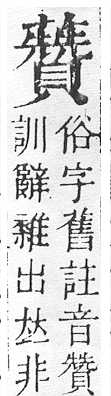 俗字舊註音贊
訓辭雜出𠀤非